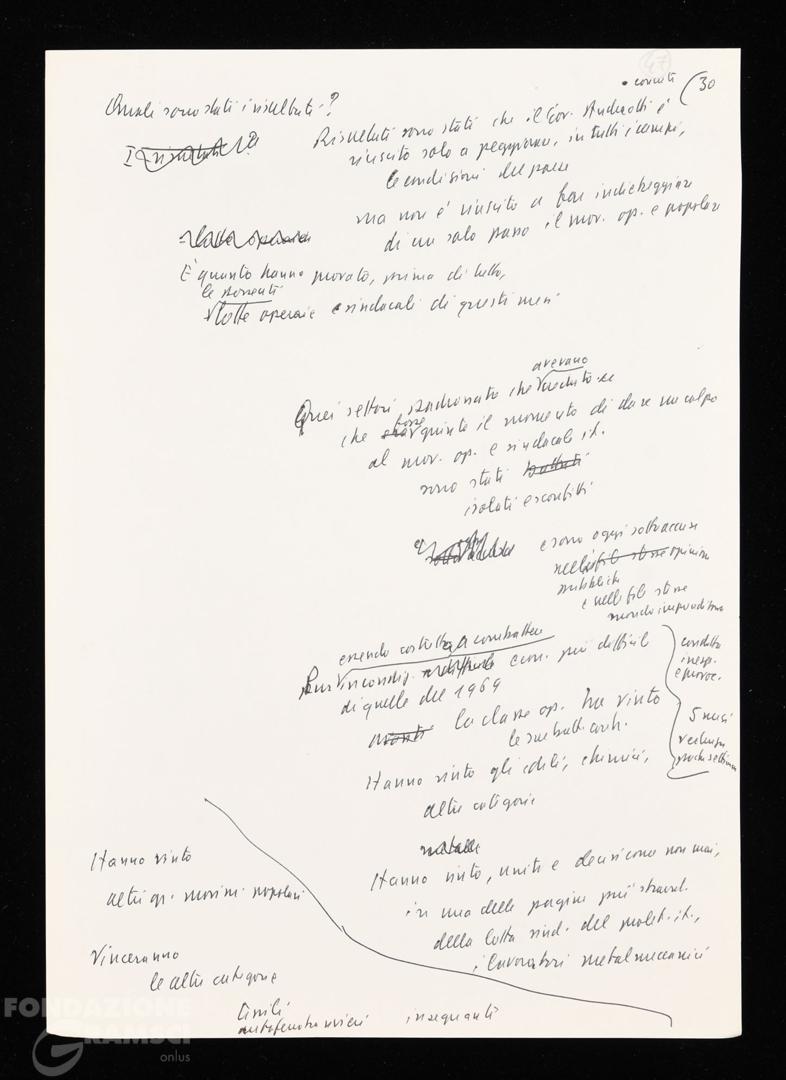 47
• concreti (30
Quali sono stati i risultati?
I risultati?
Risultati sono stati che il Gov. Andreotti è
riuscito solo a peggiorare, in tutti i campi,
le condizioni del paese
ma non è riuscito a far indietreggiare
di un solo passo il mov. op. e popolare
È quanto hanno provato, prima di tutto,
le possenti
lotte operaie e sindacali di questi mesi
avevano
Quei settori padronato che creduto
che fosse giunto il momento di dare un colpo
al mov. op. e sindacale it.
sono stati battuti
isolati e sconfitti
e sono oggi sotto accusa
nelle file stesse opinione
pubblica
e nelle file stesse
mondo imprenditoria
essendo costretta a combattere
Pur in condiz. con. più difficili
di quelle del 1969
avanti la classe op. ha vinto
le sue batt. contr.
condotta
irresp.
e provoc.
5 mesi
Hanno vinto gli edili, chimici,
altre categorie
Hanno vinto, uniti e decisi come non mai,
in una delle pagine più straord.
della lotta sind. del prolet. it.,
i lavoratori metalmeccanici
Hanno vinto
altri gr. movim. popolari
Vinceranno
le altre categorie
tessili
autoferrotranvieri insegnanti
FONDAZIONE
GRAMSCI
onlus